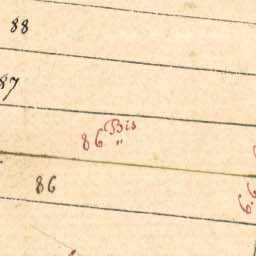 88
87
86 Bis
"
86
6.6